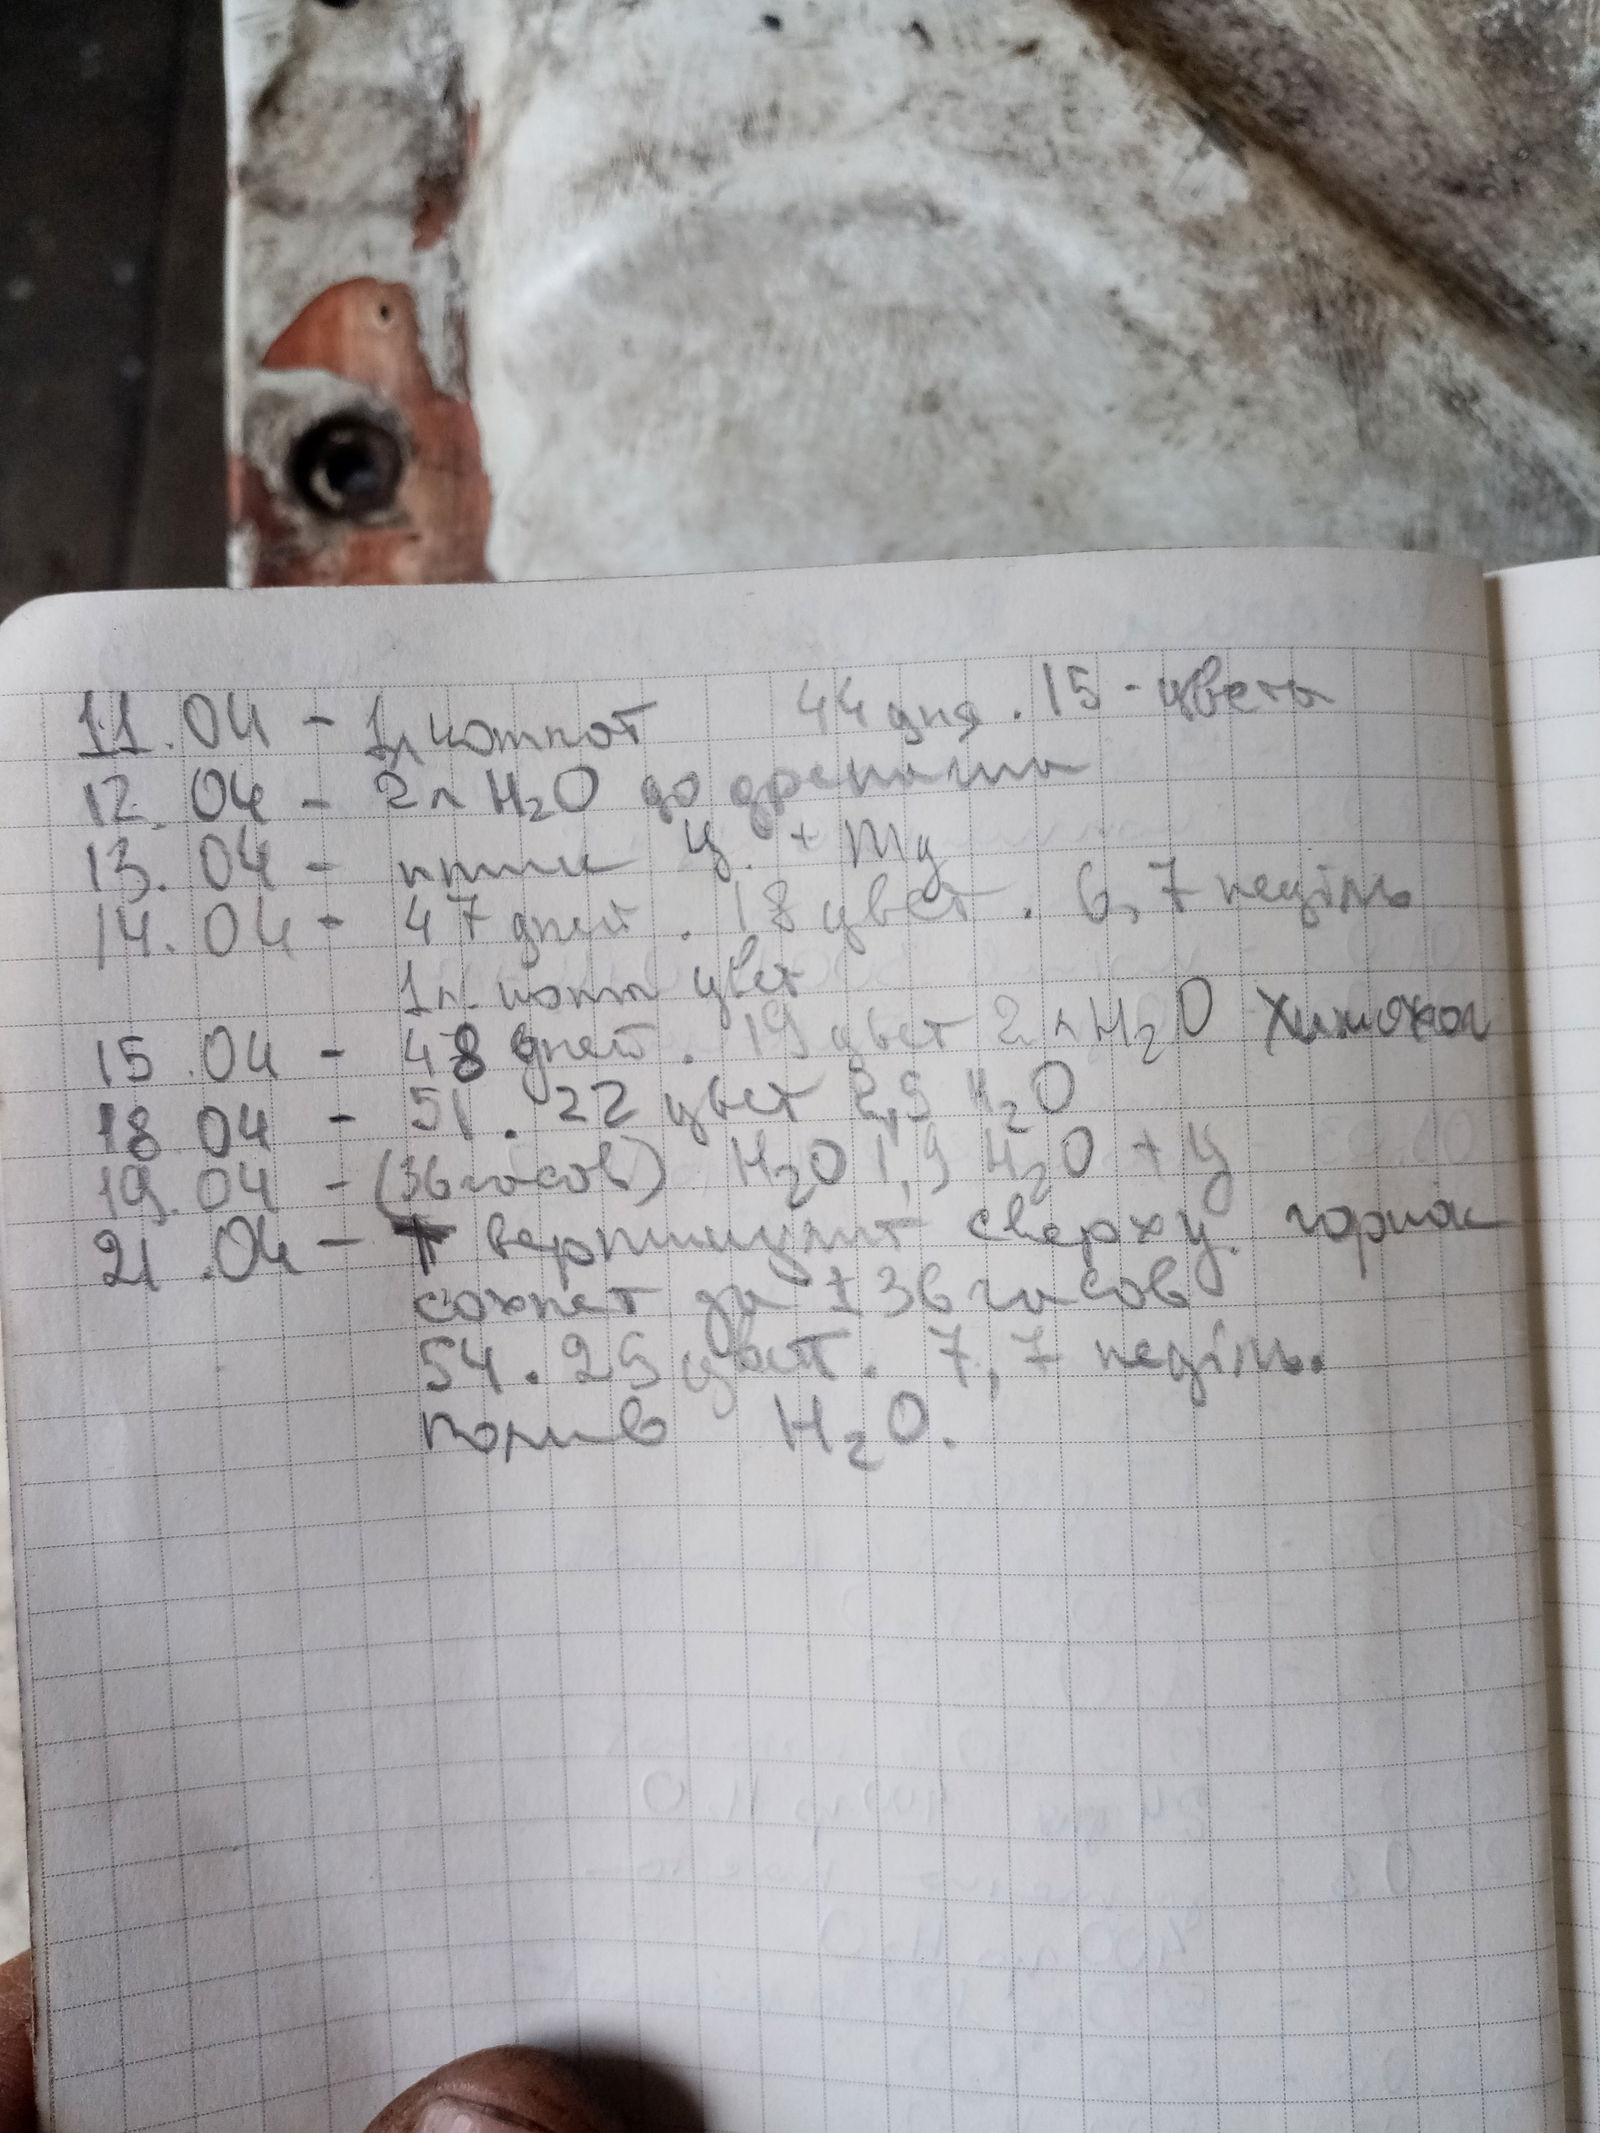 11.04 - 1л компот 44 дня. 15 - цветы
12.04 - 2л H₂O до дренажа
13.04 - ц. + Mg
14.04 - 47 дней. 18 цвет. 6,7 неділь
1л. комп цвет
15.04 - 48 дней. 19 цвет 2л H₂O
18 04 - 51. 22 цвет 2,5 H₂O
19.04 - (36 часов) H₂O 1,9 H₂O + ц
21.04 - вермикулит сверху. горшок
сохнет за 36 часов
54. 25 цвет. 7,7 неділь.
полив H₂O.